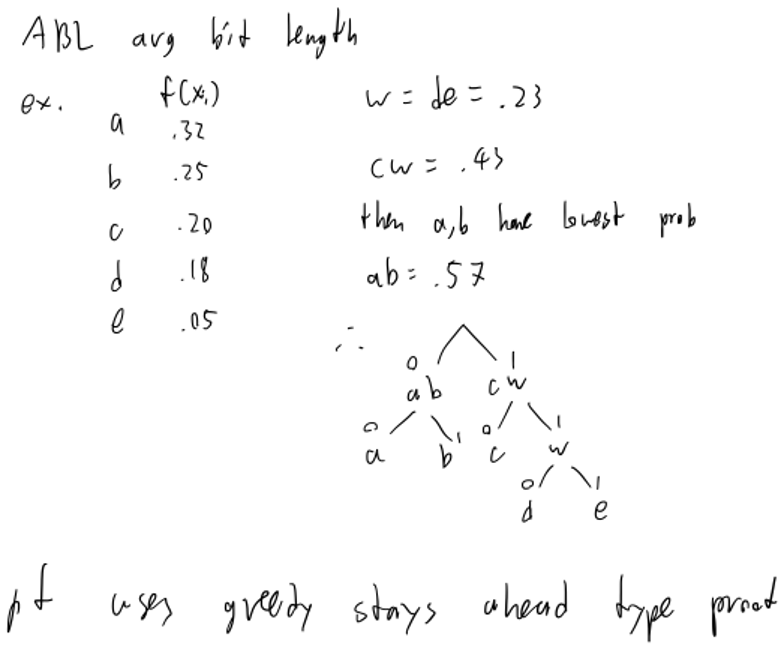 ABL avg bit length
ex. f(xᵢ)
a .32
b .25
c .20
d .18
e .05
w = de = .23
cw = .43
then a,b have lowest prob
ab = .57
∴
0 1
ab cw
0 1 0 1
a b c w
0 1
d e
pf uses greedy stays ahead type proof